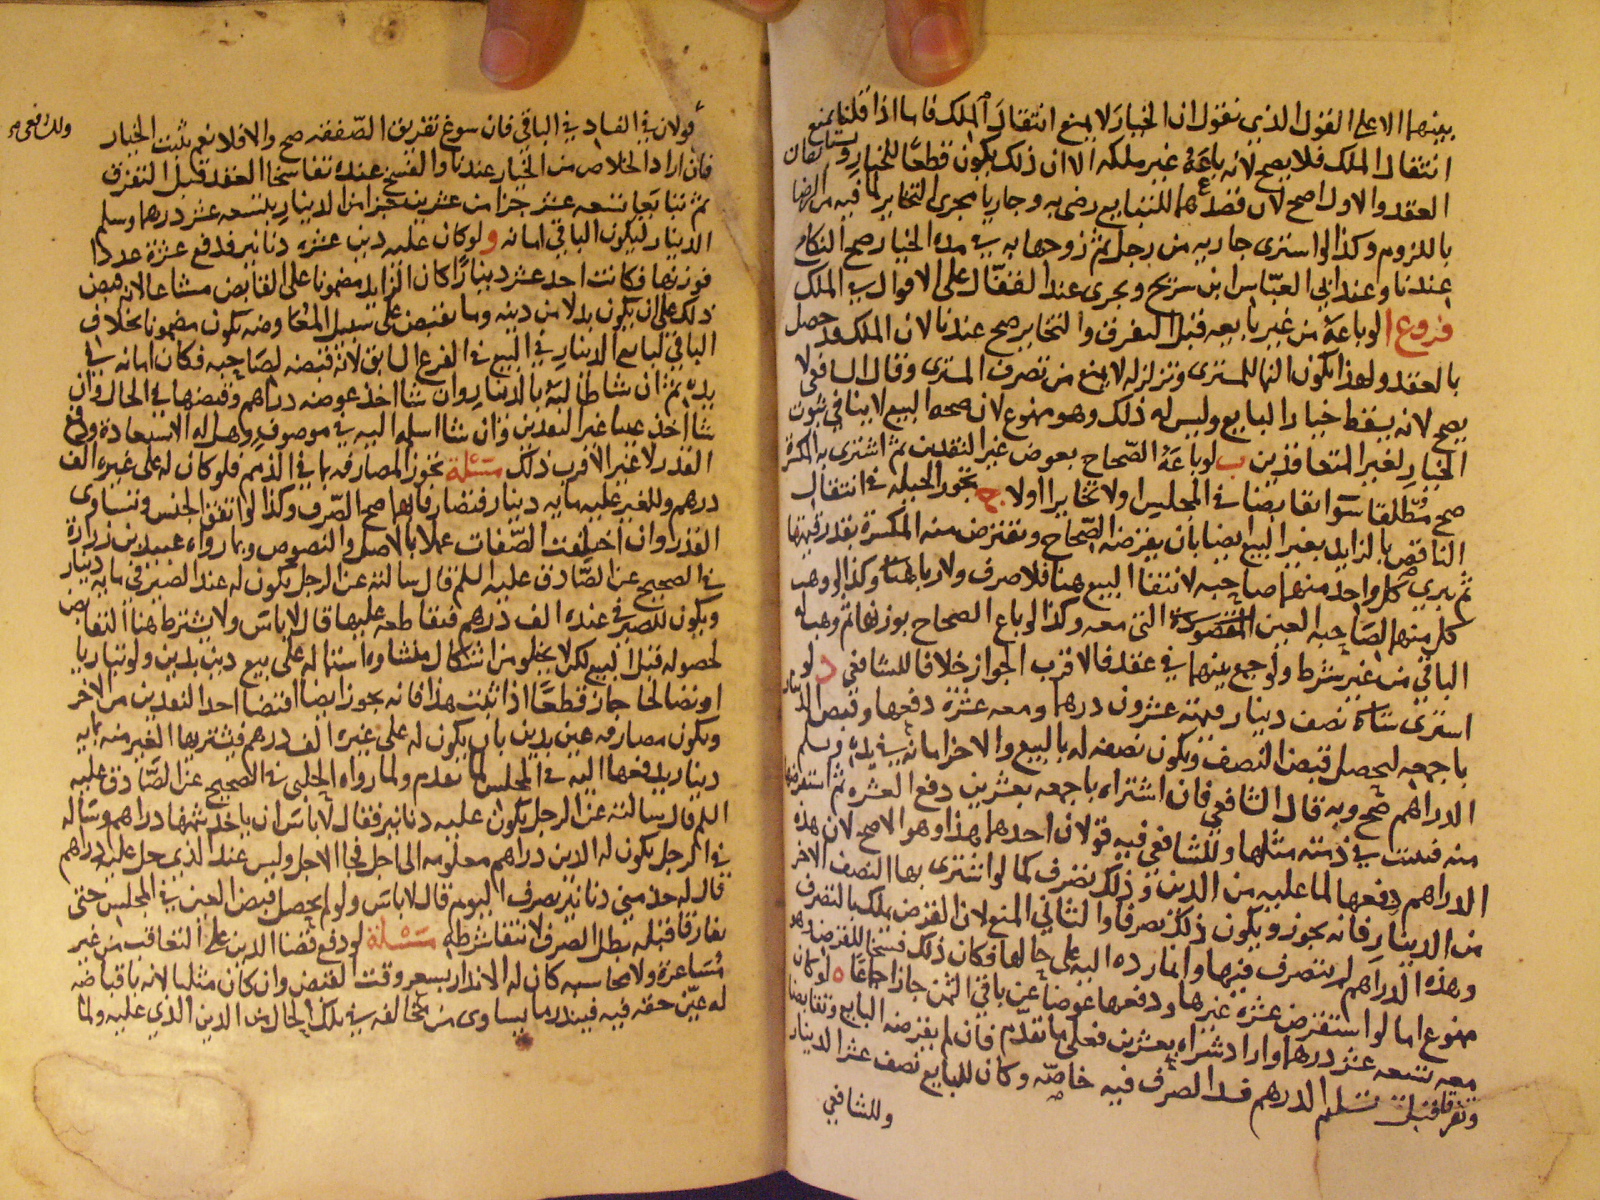 بينهما الا على القول الذي نقول ان الخيار لا يمنع انتقال الملك فاما اذا قلنا يمنع
انتقال الملك فلا يصح لانه باعه غير ملكه الا ان ذلك يكون قطعا للخيار ويستأنفان
العقد والاول اصح لان قصدهما للتبايع رضى به وجاريا مجرى التخاير لما فيه من الرضا
باللزوم وكذا لو اشترى جارية من رجل ثم زوجها به في مدة الخيار صح النكاح
عندنا وعند ابي العباس ابن سريج ويجري عند القفال على الاقوال في الملك
فروع ا لو باعه من غير بايعه قبل التفرق والتخاير صح عندنا لان الملك قد حصل
بالعقد ولهذا يكون النما للمشتري وتزلزله لا يمنع من تصرف المشتري وقال الشافعي لا
يصح لانه يسقط خيار البايع وليس له ذلك وهو ممنوع لان صحة البيع لا ينافي ثبوت
الخيار لغير المتعاقدين ب لو باعه الصحاح بعوض غير النقدين ثم اشترى به المكسرة
صح مطلقا سوا تقابضا في المجلس اولا تخايرا اولا ج تجوز الحيلة في انتقال
الناقص بالزايد بغير البيع ايضا بان يقرضه الصحاح ويقترض منه المكسرة بقدر قيمتها
ثم يبري كل واحد منهما صاحبه لانتفا البيع هنا فلا صرف ولا ربا هنا وكذا لو وهب
كل منهما لصاحبه العين المقصودة التي معه وكذا لو باع الصحاح بوزنها ثم وهب له
الباقي من غير شرط ولو جمع بينهما في عقد فالاقرب الجواز خلافا للشافعي د لو
اشترى شاة نصف دينار قيمته عشرون درهما ومعه عشرة دفعها وقبض الدينار
باجمعه ليحصل قبض النصف ويكون نصفه له بالبيع والاخر امانة في يده فيسلم
الدراهم صح وبه قال الشافعي فان اشتراه باجمعه بعشرين دفع العشرة ثم استقرضها
منه فبقيت في ذمته مثلها وللشافعي فيه قولان احدهما هذا وهو الاصح لان هذه
الدراهم دفعها لما عليه من الدين وذلك تصرف كما لو اشترى بها النصف الاخر
من الدينار فانه يجوز ويكون ذلك تصرفا والثاني المنع لان القرض يملك بالتصرف
وهذه الدراهم لم يتصرف فيها وانما رده اليه على حالها فكان ذلك فسخا للقرض وهو
ممنوع اما لو استقرض عشرة غيرها ودفعها عوضا عن باقي الثمن جاز اجماعا ه لو كان
معه تسعه عشر درهما واراد شراه بعشرين فعلى ما تقدم فان لم يقرضه البايع وتقابضا
وتفرقا قبل تسلم الدرهم فسد الصرف فيه خاصه وكان للبايع نصف عشر الدينار
وللشافعي
قولان في الفساد في الباقي فان سوغ تفريق الصفقه صح والا فلا نعم يثبت الخيار
وللشافعي
فان اراد الخلاص من الخيار عندنا والفسخ عنده تفاسخا العقد قبل التفرق
ثم تبايعا تسعه عشر جزا من عشرين جزا من الدينار بتسعه عشر درهما وسلم
الدينار ليكون الباقي امانه و لو كان عليه دين عشرة دنانير فدفع عشرة عددا
فوزنها فكانت احد عشر دينارا كان الزايد مضمونا على القابض مشاعا لانه قبض
ذلك على ان يكون بدلا من دينه وما يقبض على سبيل المعاوضه يكون مضمونا بخلاف
الباقي لبايع الدينار في البيع في الفرع السابق لانه قبضه لصاحبه فكان امانه في
يده ثم ان شا طالبه بالدينار وان شا اخذ عوضه دراهم وقبضها في الحال وان
شا اخذ عينا غير النقدين وان شا اسلمه اليه في موصوف وهل له الاستعادة ودفع
القدر لا غير الاقرب ذلك مسئلة تجوز المصارفه بما في الذمم فلو كان له على غيره الف
درهم وللغير عليه مايه دينار فتصارفا بهما صح الصرف وكذا لو اتفق الجنس وتساوى
القدر وان اختلفت الصفات عملا بالاصل والنصوص وبما رواه عبيد بن زرارة
في الصحيح عن الصادق عليه السلم قال سالته عن الرجل يكون له عند الصيرفي مايه دينار
ويكون للصيرفي عنده الف درهم فيقاطعه عليها قال لا باس ولا يشترط هنا التقابض
لحصوله قبل البيع لكن لا يخلو من اشكال منشاوه اشتماله على بيع دين بدين ولو تباريا
او تصالحا جاز قطعا اذا ثبت هذا فانه يجوز ايضا اقتضا احد النقدين من الاخر
ويكون مصارفه عين بدين بان يكون له على غيره الف درهم فيشتريها الغير منه بمايه
دينار يدفعها اليه في المجلس لما تقدم ولما رواه الحلبي في الصحيح عن الصادق عليه
السلم قال سالته عن الرجل يكون عليه دنانير فقال لا باس ان ياخذ بثمنها دراهم وساله
في الرجل يكون له الدين دراهم معلومه الى اجل فجا الاجل وليس عند الذي حل عليه دراهم
قال له خذ مني دنانير بصرف اليوم قال لا باس ولو لم يحصل قبض العين في المجلس حتى
تفارقا قبله بطل الصرف لانتفا شرطه مسئلة لو دفع قضا الدين على التعاقب من غير
مساعرة ولا محاسبه كان له الاندار بسعر وقت القبض وان كان مثليا لانه باقباضه
له عين حقه فيه فيندر بما يساوي من مخالفه في تلك الحال من الدين الذي عليه ولما